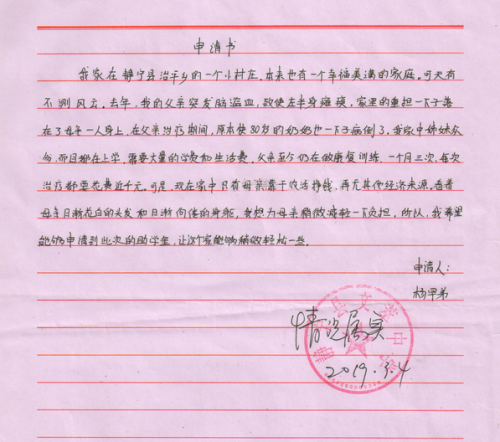 申请书
我家在静宁县治平乡的一个小村庄,本来也有一个幸福美满的家庭。可天有
不测风云。去年,我的父亲突发脑溢血,致使左半身瘫痪,家里的重担一下子落
在了母亲一人身上,在父亲治疗期间,原本使80岁的奶奶也一下子病倒了,我家中姊妹众
多,而且都在上学,需要大量的学费和生活费,父亲至今仍在做康复训练,一个月三次,每次
治疗都要花费近千元。可是,现在家中只有母亲靠干农活挣钱,再无其他经济来源。看着
母亲日渐花白的头发和日渐佝偻的身躯,我想为母亲稍微减轻一下负担,所以,我希望
能够申请到此次的助学金,让这个家能够稍微轻松一些。
申请人:
杨早弟
情况属实
2019.3.4
静宁县文萃中学